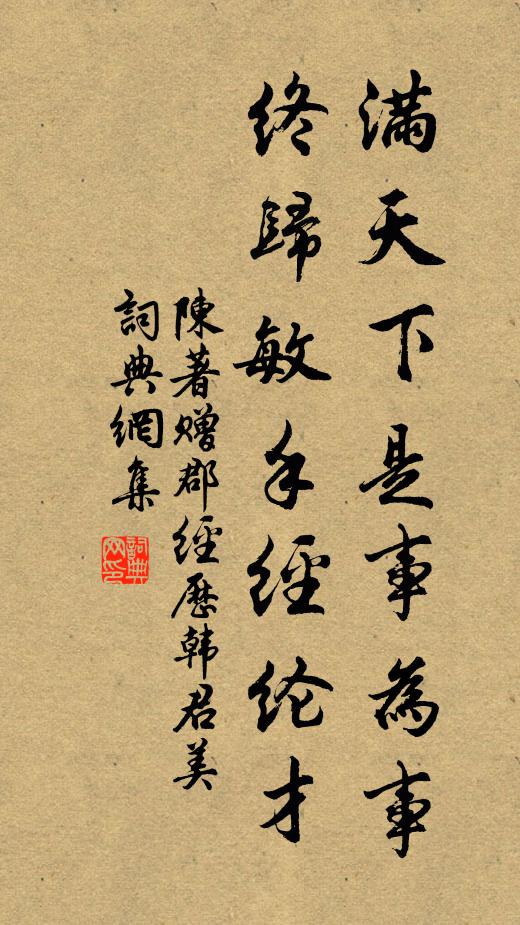 满天下是事為事
终歸敏手經纶才
陳著贈郡經歷韩君美
詞典網集
詞典
网印